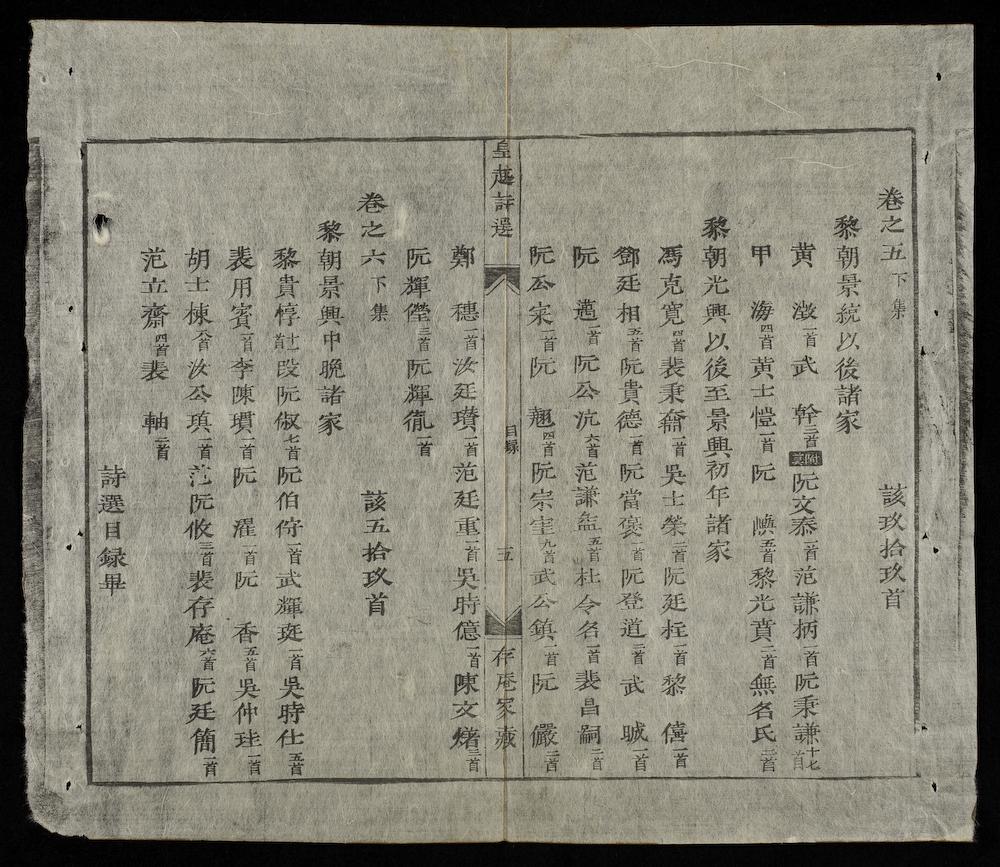 卷之五下集 該玖拾玖首
黎朝景統以後諸家
黄 澂一首 武 幹三首 附莫 阮文泰一首 范謙柄一首 阮秉謙十七首
甲 海四首 黄士愷一首 阮 五首 黎光賁二首 無名氏二首
黎朝光興以後至景興初年諸家
馮克寬四首 裴秉 一首 吳士榮二首 阮廷 一首 黎 僖一首
鄧廷相五首 阮貴德一首 阮當褒一首 阮登道三首 武 晠一首
阮 邁一首 阮公沆六首 范謙益五首 杜令名一首 裴昌嗣二首
阮公宋一首 阮 翹四首 阮宗窐九首 武公鎮一首 阮 儼二首
皇越詩選 目録 五 存庵家藏
鄭 穗一首 汝廷瓚一首 范廷重一首 吳時億一首 陳文 三首
阮輝 三首 阮輝 一首
卷之六下集 該五拾玖首
黎朝景興中晚諸家
黎貴惇十二首 段阮俶七首 阮伯 一首 武輝珽一首 吳時仕五首
裴用賓一首 李陳瑻一首 阮 濯一首 阮 香五首 吳仲珪一首
胡士棟六首 汝公瑱一首 范阮攸三首 裴存庵六首 阮廷簡一首
范立齋四首 裴 軸二首
詩選目録畢